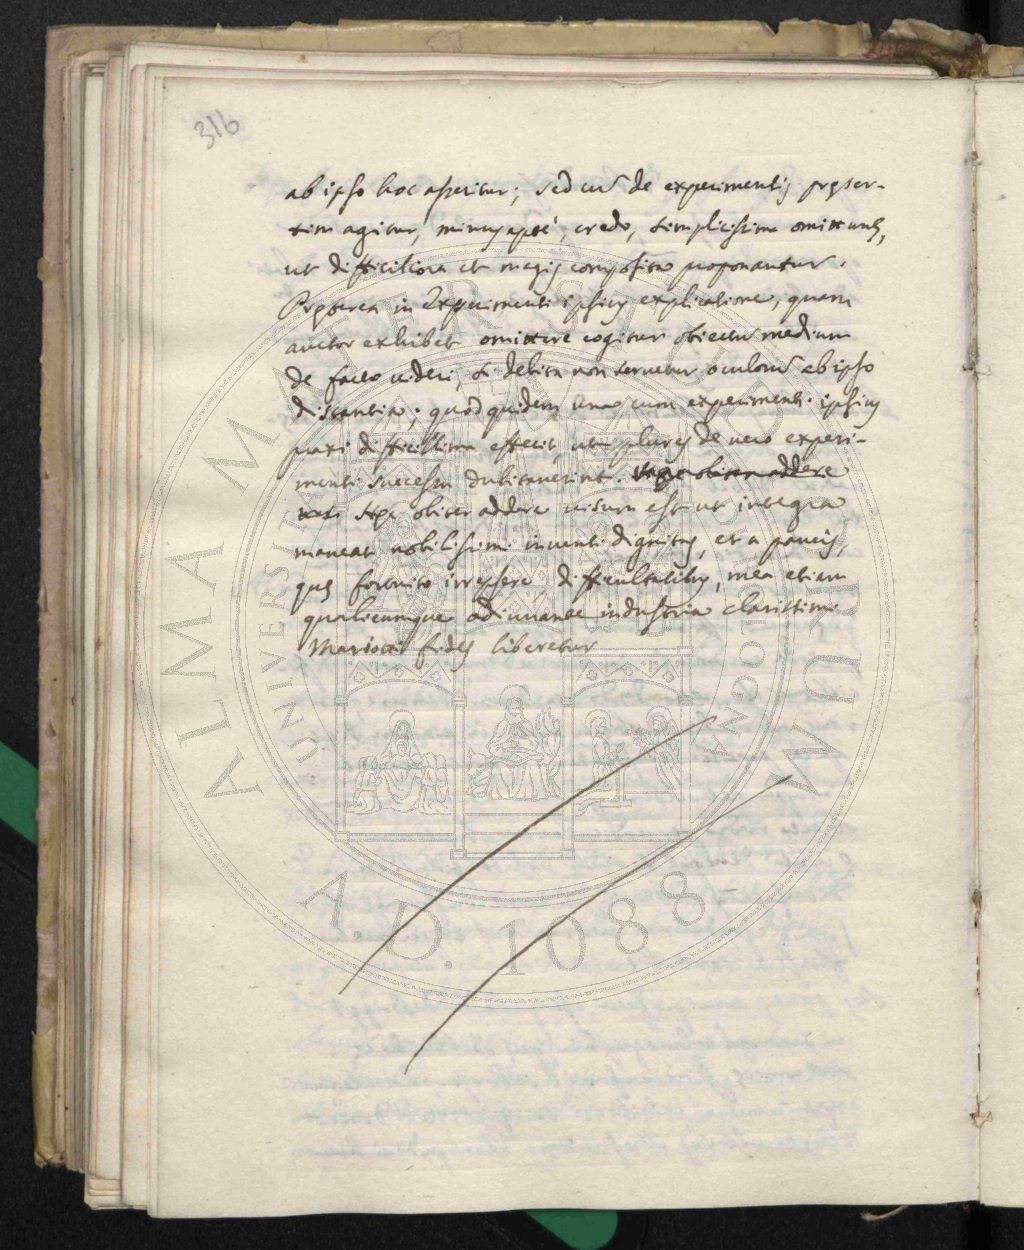 316
ab ipso hoc asseritur; sed cum̃ de experimentis pręser-
tim agitur, minus aptè, credo, simplicissima omittunt͛,
ut difficiliora et magis composita proponantur.
Pręterea in Experimenti ipsius explicatione, quam
auctor exhibet omittere cogitur obiectum̃ medium
de facto videri, si debita non servetur oculorum̃ ab ipso
distantia; quod quidem una cum experimenti ipsius
praxi difficillima effecit, ut plures de vero experi-
menti successu dubitaverint. obiter addere
obiter addere visum est ut integra
maneat nobilissimi inventi dignitas, et a paucis,
quę fortuito irrepsere difficultatibus, mea etiam
qualicumque adiuvante industria clarissimi
Mariotti fides liberetur
ALMA MATER STUDIORUM
UNIVERSITÀ DI BOLOGNA
A.D. 1088